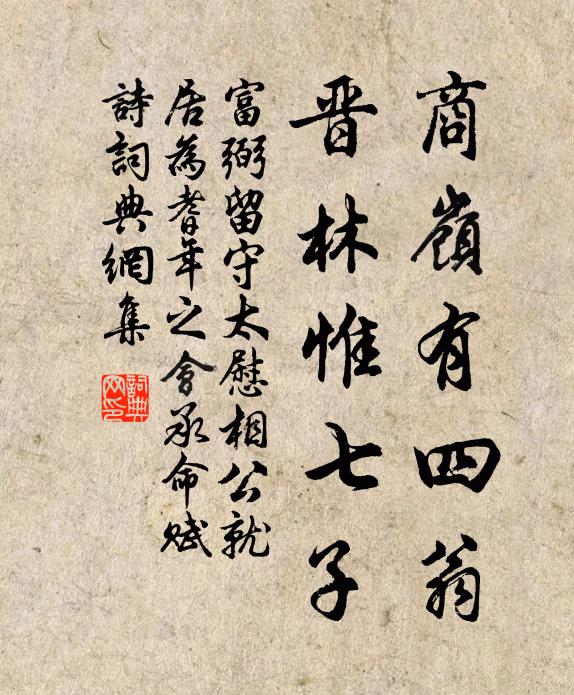 商嶺有四翁
晋林惟七子
富弼留守太慰相公就
居為耆年之會承命賦
詩詞典網集
詞典网印